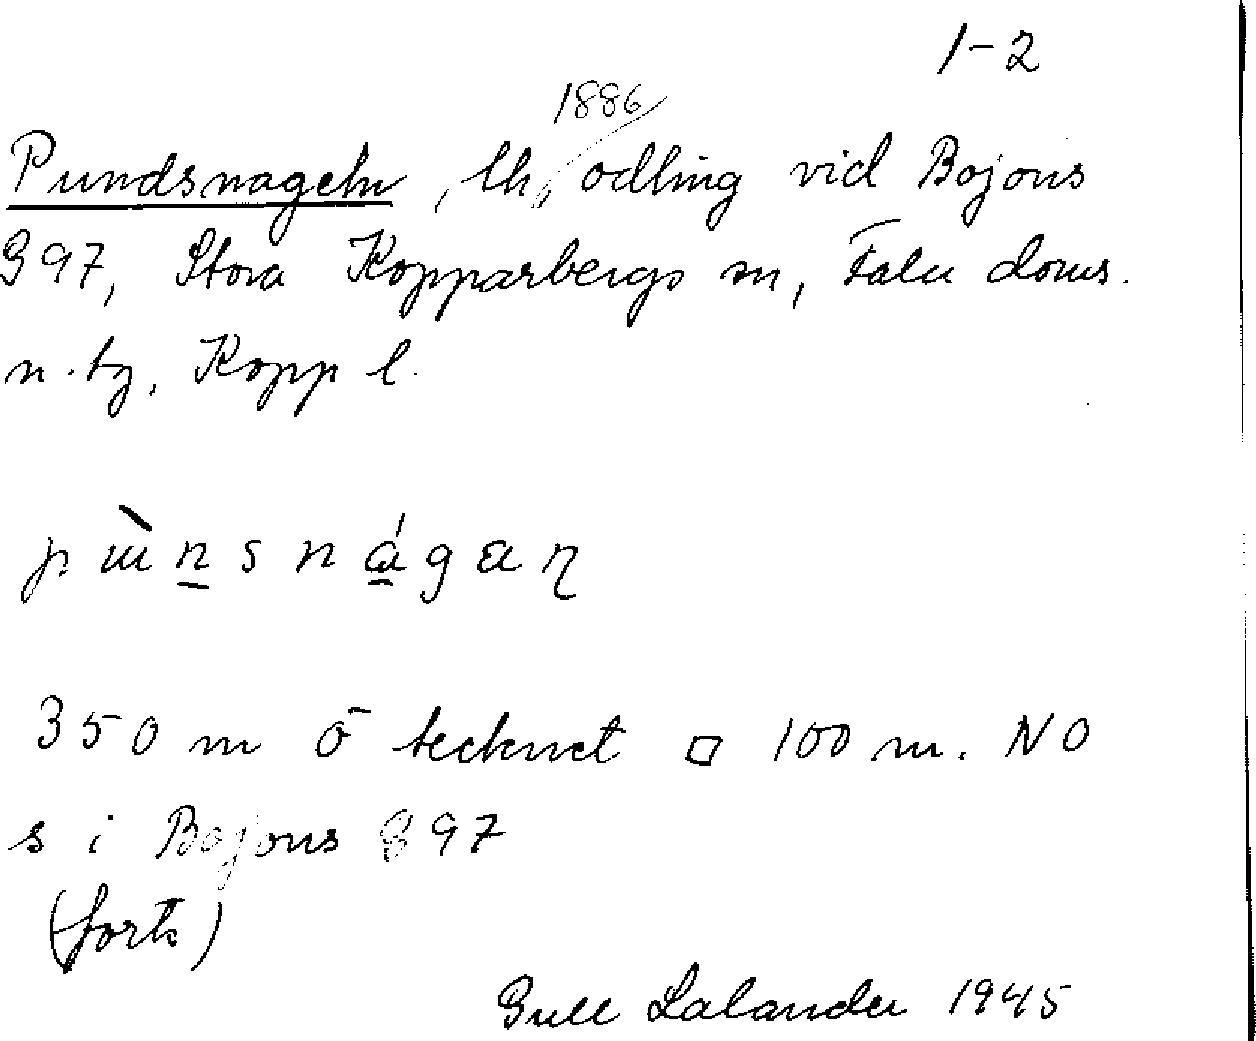 1-2
1886
Pundsnageln, lh, odling vid Bojons
G97, Stora Kopparbergs sn, Falu doms.
n. tg, Kopp l.
350 m Ö tecknet □ 100 m. NO
s i Bojons G97
(forts)
Gull Lalander 1945